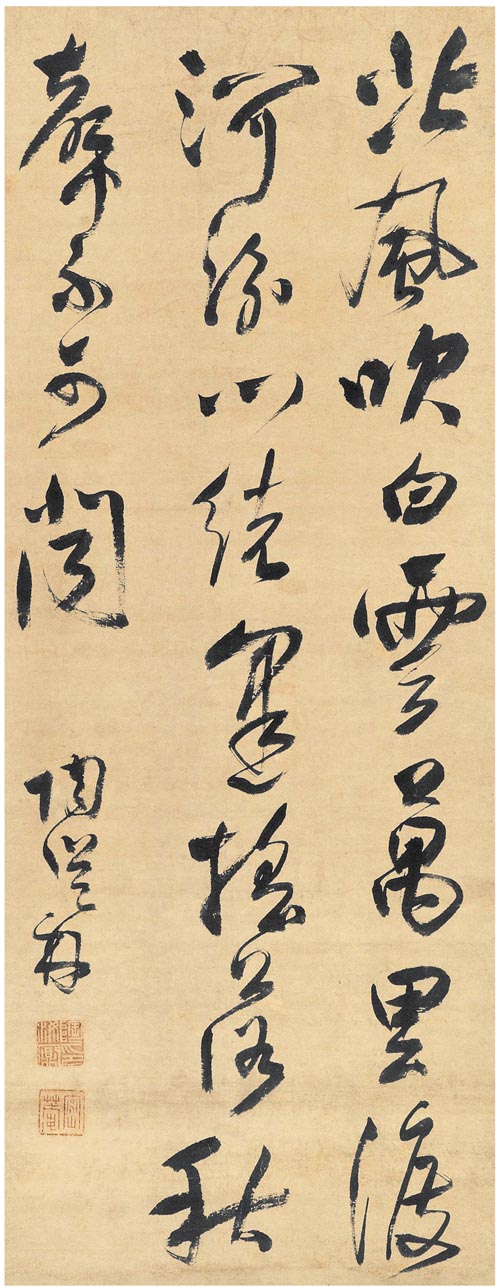 北風吹白雲萬里渡
河汾心緒逢搖落秋
聲不可聞
陶